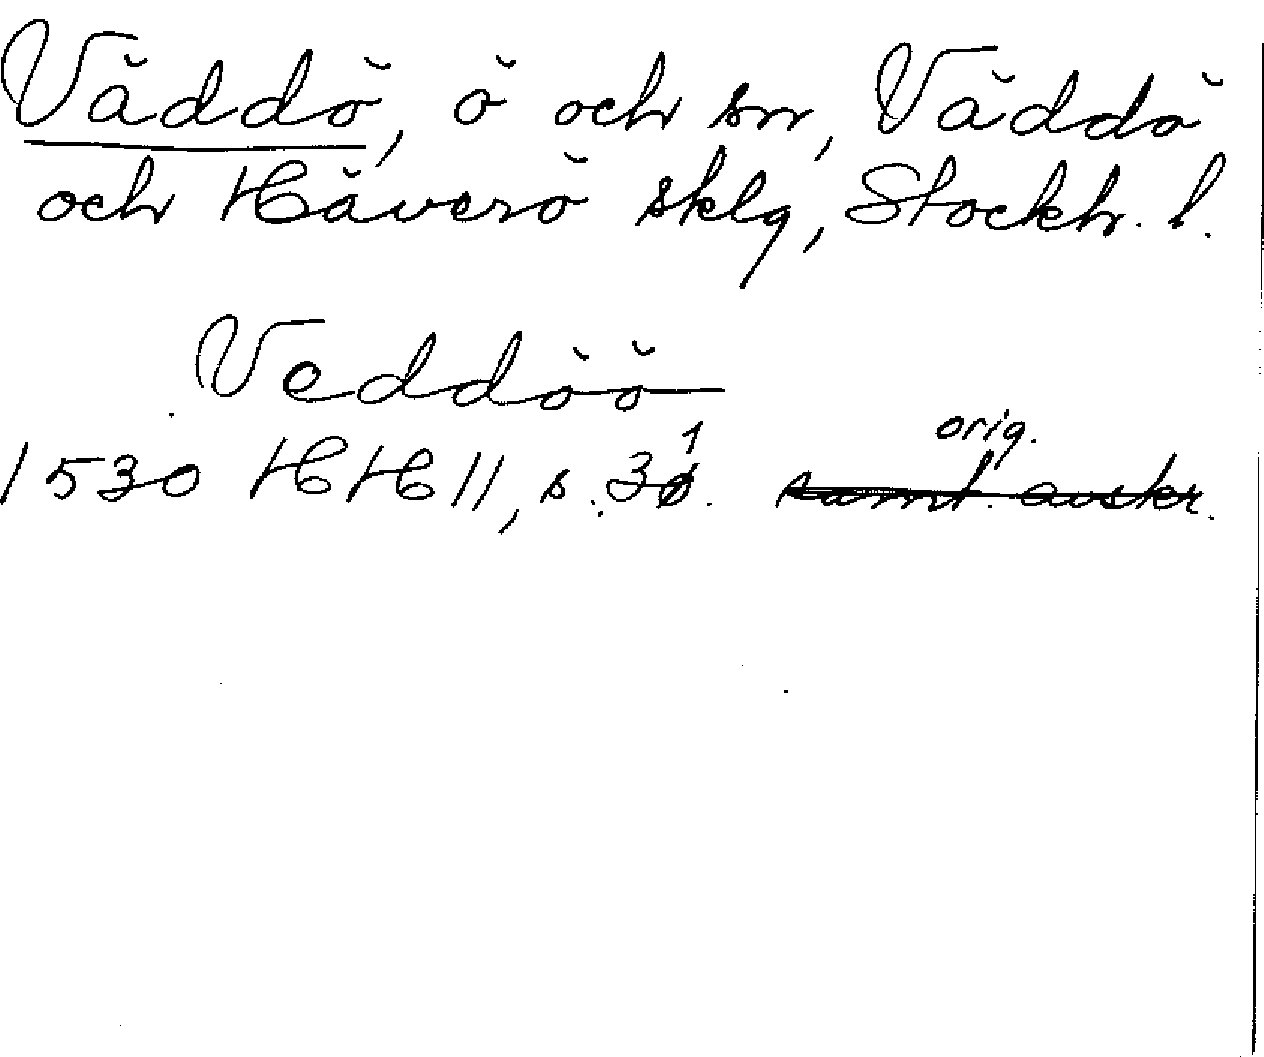 Väddö, ö och sn, Väddö
och Häverö sklg, Stockh. l.
Veddöö
orig.
1530 HH 11, s. 31. samt. avskr.